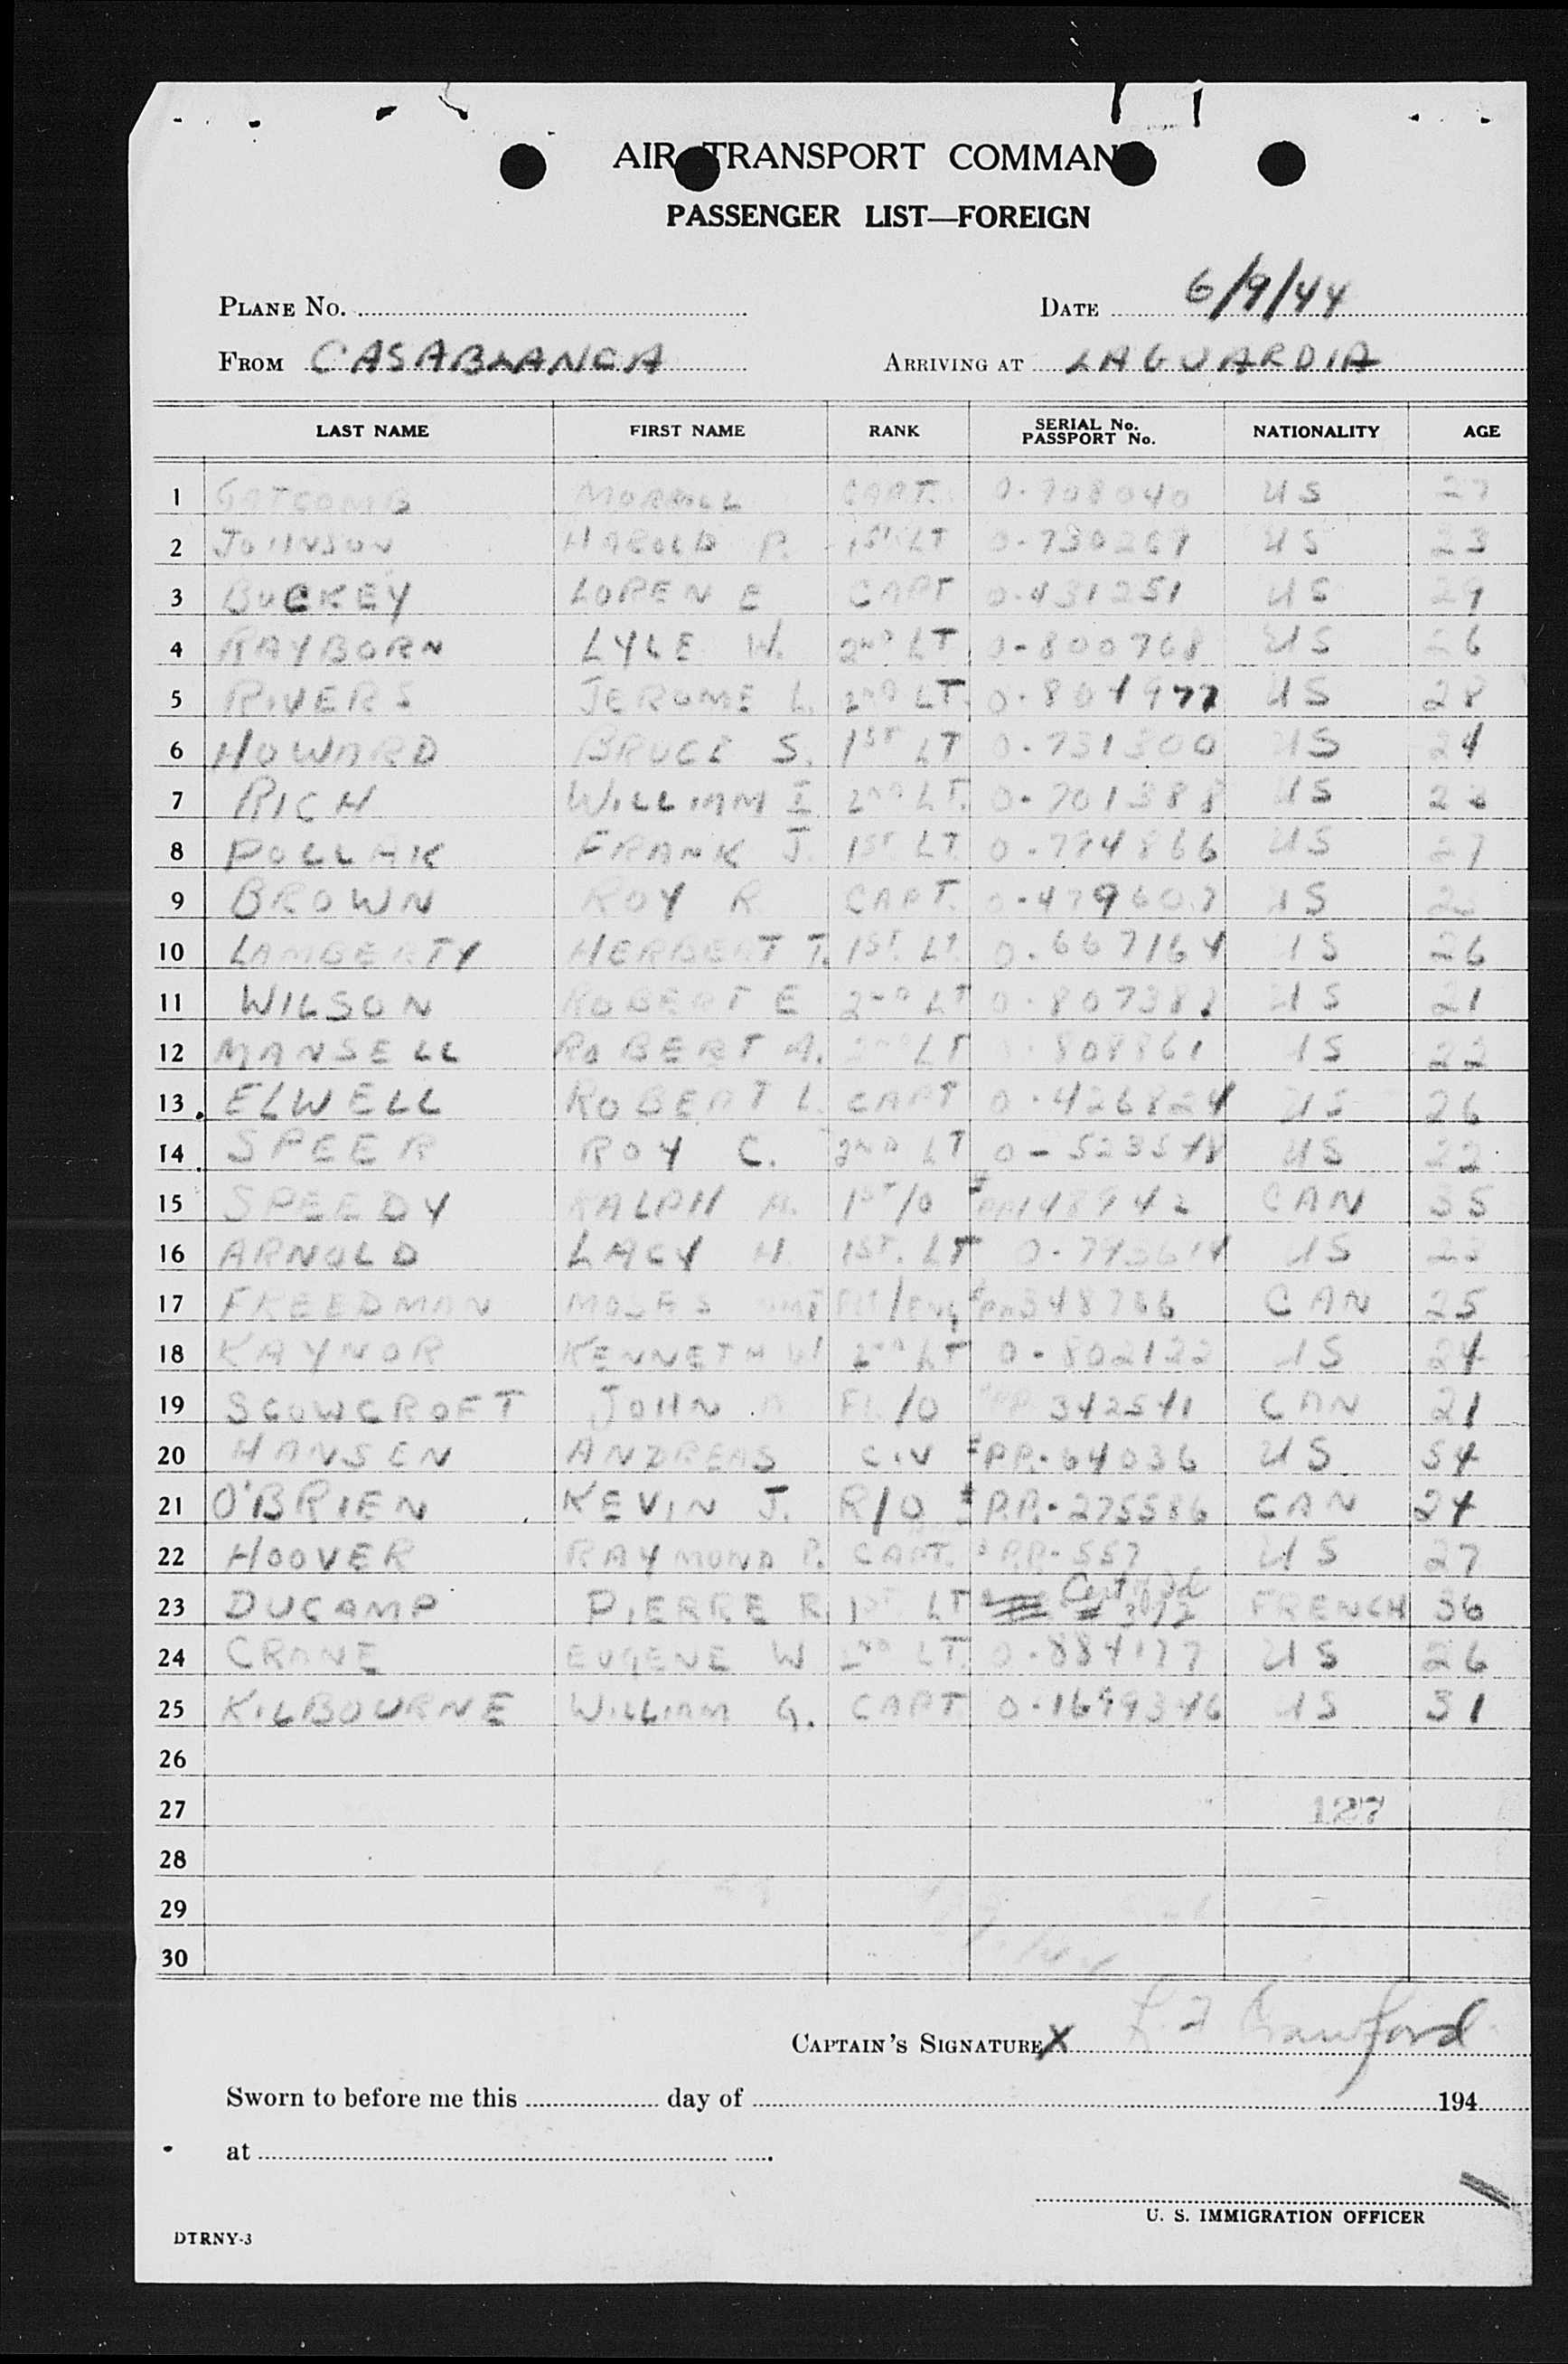 AIR TRANSPORT COMMAND
PASSENGER LIST—FOREIGN
PLANE NO. DATE 6/9/44
FROM CASABLANCA ARRIVING AT LAGUARDIA
LAST NAME FIRST NAME RANK SERIAL No. PASSPORT No. NATIONALITY AGE
1 GATCOMB CAPT. US 27
2 JOHNSON HAROLD P. 1ST LT US 23
3 BUCKEY LOREN E CAPT 0-431251 US 29
4 RAYBORN LYLE W. 2ND LT 0-800768 US 26
5 RIVERS JEROME L. 2ND LT. 0-804977 US 28
6 HOWARD BRUCE S. 1ST LT 0-731300 US 24
7 RICH WILLIAM I 2ND LT. 0-701388 US
8 POLLAK FRANK J. 1ST LT. US 27
9 BROWN ROY R. CAPT. 0-479607 US
10 LAMBERTY HERBERT T. 1ST. LT. 0-667164 US 26
11 WILSON ROBERT E 2ND LT US 21
12 MANSELL ROBERT A. 2ND LT US 22
13 ELWELL ROBERT L. CAPT 0-426824 US 26
14 SPEER ROY C. 2ND LT US 22
15 SPEEDY RALPH H. CAN 35
16 ARNOLD LACY H. 1ST. LT US
17 FREEDMAN MOSES CAN 25
18 KAYNOR KENNETH W 2ND LT US 24
19 SCOWCROFT JOHN FL/O PP 342541 CAN 21
20 HANSEN ANDREAS CIV # PP.-64036 US 54
21 O'BRIEN KEVIN J. R/O # P.P.-275586 CAN 24
22 HOOVER RAYMOND P. CAPT. # P.P.-557 US 27
23 DUCAMP PIERRE R. 1ST LT FRENCH 36
24 CRANE EUGENE W 2ND LT. 0-884177 US 26
25 KILBOURNE WILLIAM G. CAPT 0-1699346 US 31
26
27 127
28
29
30
CAPTAIN'S SIGNATURE X Crawford
Sworn to before me this day of 194
at
U. S. IMMIGRATION OFFICER
DTRNY-3